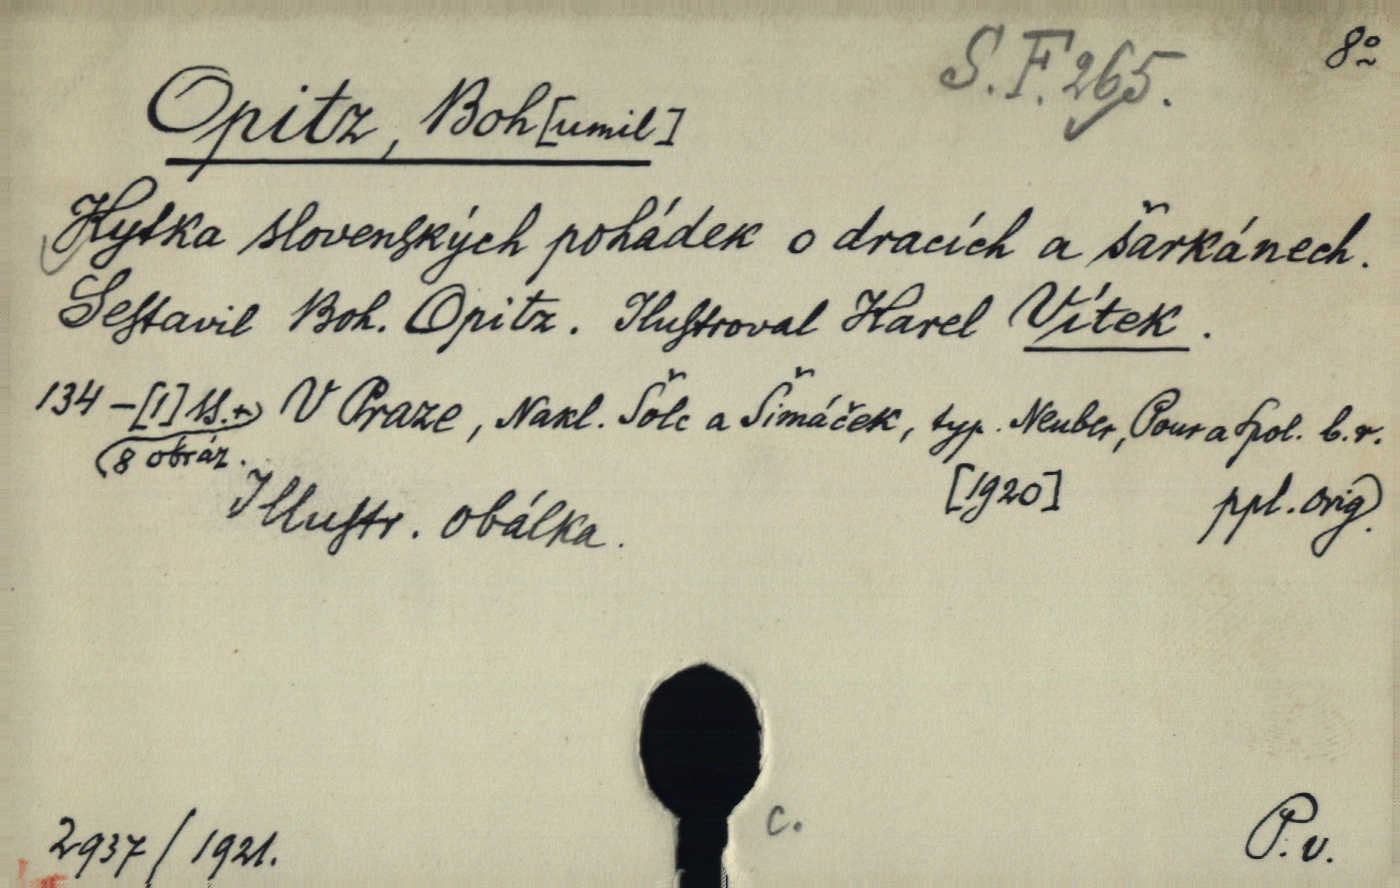 S.F.265. 8°
Opitz, Boh[umil]
Kytka slovenských pohádek o dracích a šarkánech.
Sestavil Boh. Opitz. Ilustroval Karel Vítek.
134 -[1] ss.+ V Praze, Nakl. Šolc a Šimáček, typ. Neuber, Pour a spol. b.r.
8 obráz. [1920] ppl. orig.
Illustr. obálka.
c.
2937/1921. P.v.